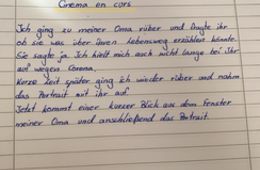 Cinema en cors
Ich ging zu meiner Oma rüber und fragte ihr
ob sie was über ihren Lebensweg erzählen könnte.
Sie sagte ja. Ich hielt mich auch nicht lange bei Ihr
auf wegen Corona.
Kurze Zeit später ging ich wieder rüber und nahm
das Portrait mit ihr auf.
Jetzt kommt einer kurzer Blick aus dem Fenster
meiner Oma und anschließend das Portrait.